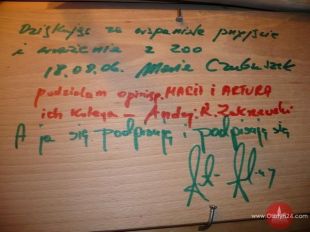 Dziękując za wspaniałe przyjęcie
i wrażenia z ZOO
18.08.06. Maria Czubaszek
podzielam opinię p. MARII i ARTURA
ich kolega - Andrzej. R. Zakrzewski
A ja się podpisuję i podpisuję się
www.Olsztyn24.com